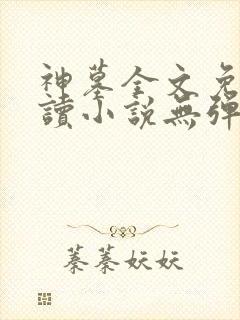 神墓全文免
讀小說無彈
蓁蓁妖妖